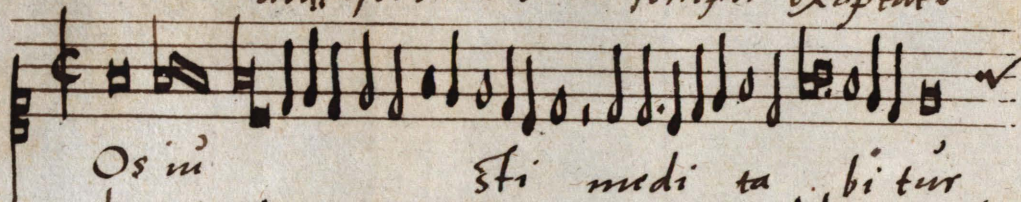 Os iu sti medi ta bi tur